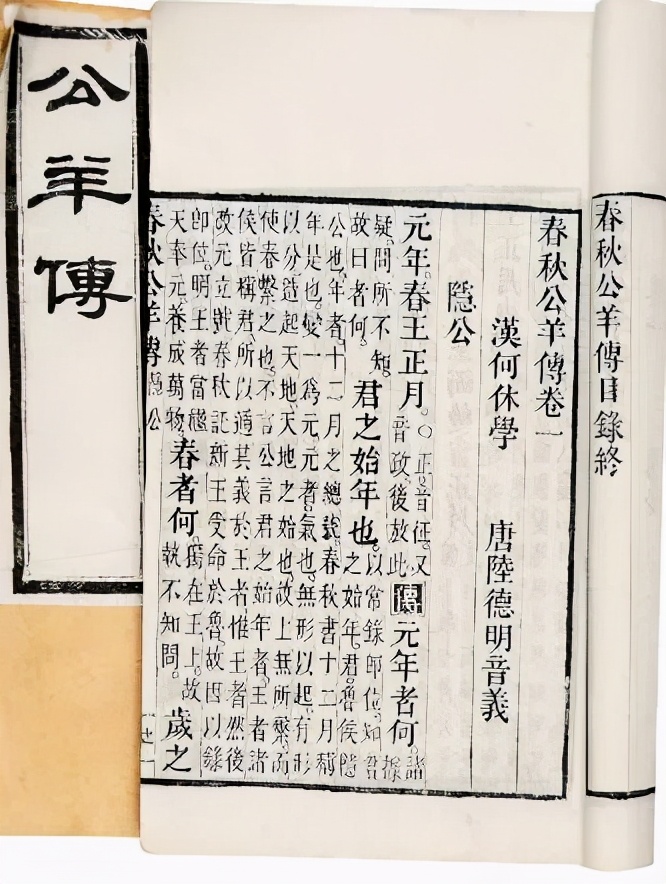 春秋公羊傳目錄終
春秋公羊傳卷一
漢何休學 唐陸德明音義
隱公
元年春王正月。〇正音征。又音政。後放此 傳 元年者何。諸據
疑。問所不知。故曰者何。君之始年也。以常錄即位。知君之始年。君魯侯隱
公也。年者。十二月之總號。春秋書十二月稱
年是也。變一為元。元者。氣也。無形以起。有形
以分。造起天地。天地之始也。故上無所繫。而
使春繫之也。不言公言君之始年者。王者諸
侯皆稱君。所以通其義於王者。惟王者然後
改元立號。春秋託新王受命於魯。故因以錄
即位。明王者當繼天奉元。養成萬物。春者何。獨在王上。故執不知問。歲之
春秋公羊傳 隱公
公羊傳